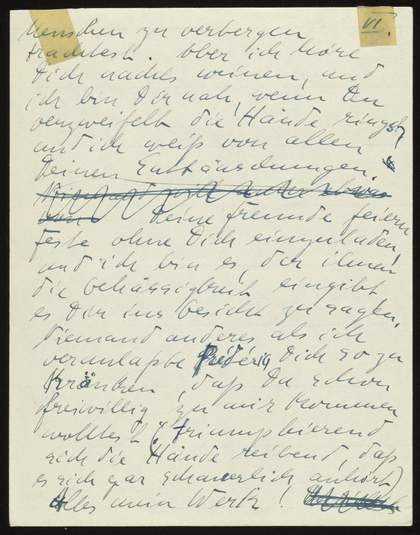 VI.
Menschen zu verbergen
trachtest. Aber ich höre
Dich nachts weinen, und
ich bin Dir nah, wenn Du
verzweifelt die Hände ringst,
und ich weiß von allen
Deinen Enttäuschungen.
Deine Freunde feiern
Feste ohne Dich einzuladen,
und ich bin es, der ihnen
die Gehässigkeit eingibt
es Dir ins Gesicht zu sagen.
Niemand anderes als ich
veranlaßte Frédéric Dich so zu
kränken, daß Du schon
freiwillig zu mir kommen
wolltest, (triumphierend
sich die Hände reibend, daß
es sich gar schauerlich anhört)
Alles mein Werk!